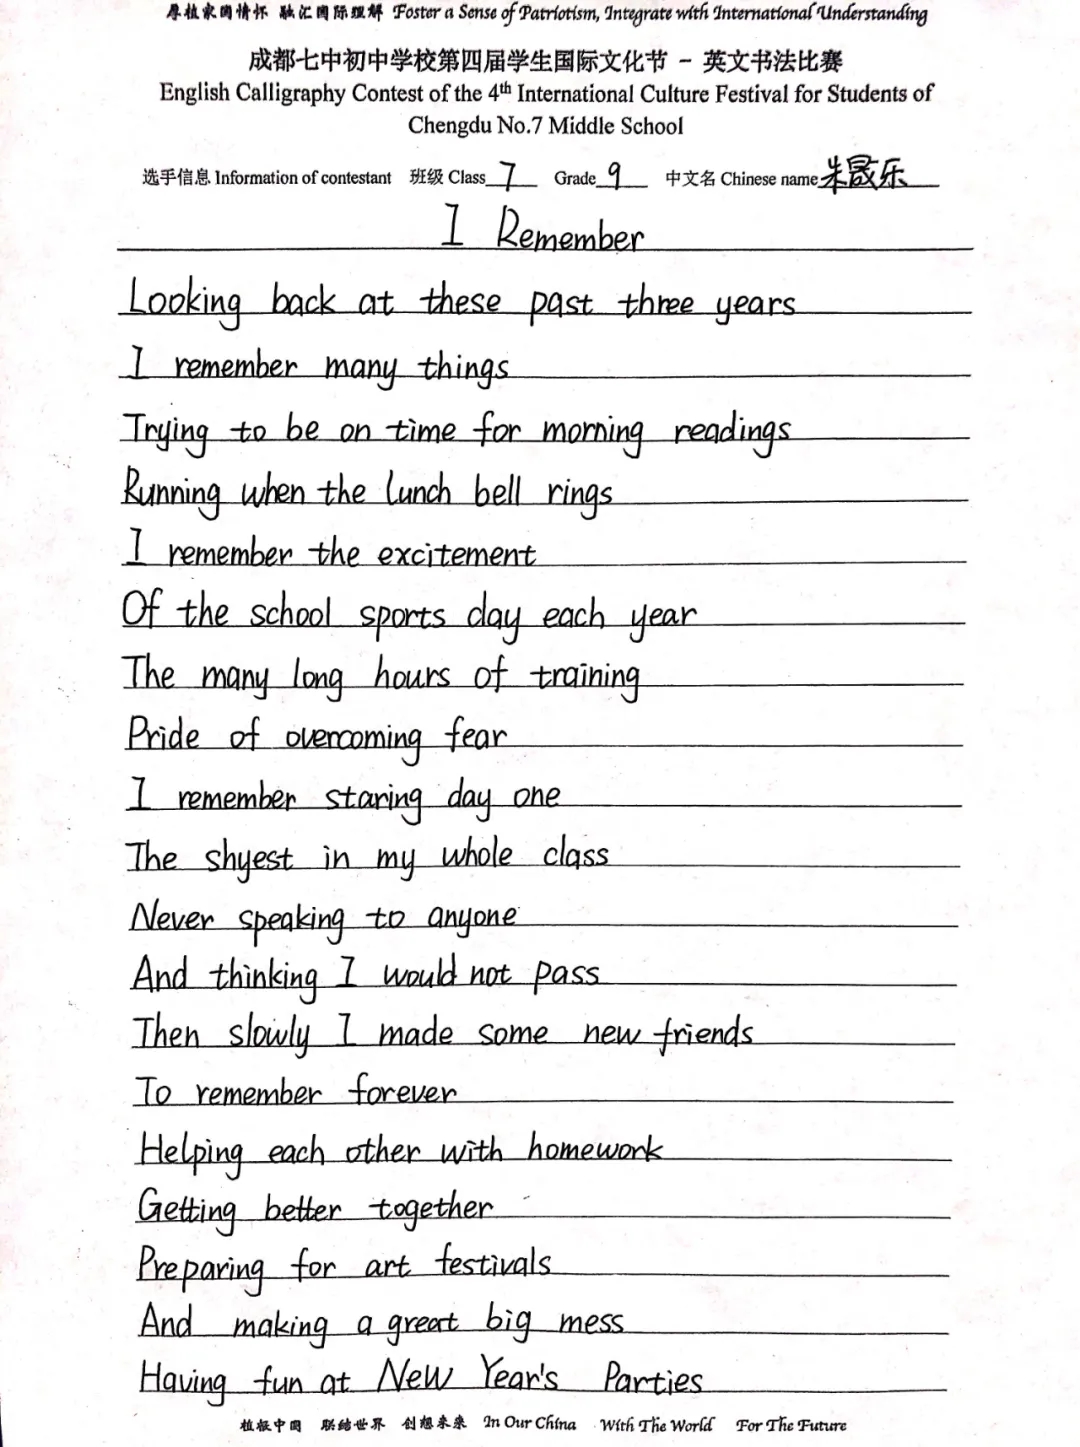 厚植家国情怀 融汇国际理解 Foster a Sense of Patriotism, Integrate with International Understanding
成都七中初中学校第四届学生国际文化节 - 英文书法比赛
English Calligraphy Contest of the 4th International Culture Festival for Students of
Chengdu No.7 Middle School
选手信息 Information of contestant 班级 Class 7 Grade 9 中文名 Chinese name 朱晟乐
I Remember
Looking back at these past three years
I remember many things
Trying to be on time for morning readings
Running when the lunch bell rings
I remember the excitement
Of the school sports day each year
The many long hours of training
Pride of overcoming fear
I remember staring day one
The shyest in my whole class
Never speaking to anyone
And thinking I would not pass
Then slowly I made some new friends
To remember forever
Helping each other with homework
Getting better together
Preparing for art festivals
And making a great big mess
Having fun at New Year's Parties
植根中国 联结世界 创想未来 In Our China With The World For The Future